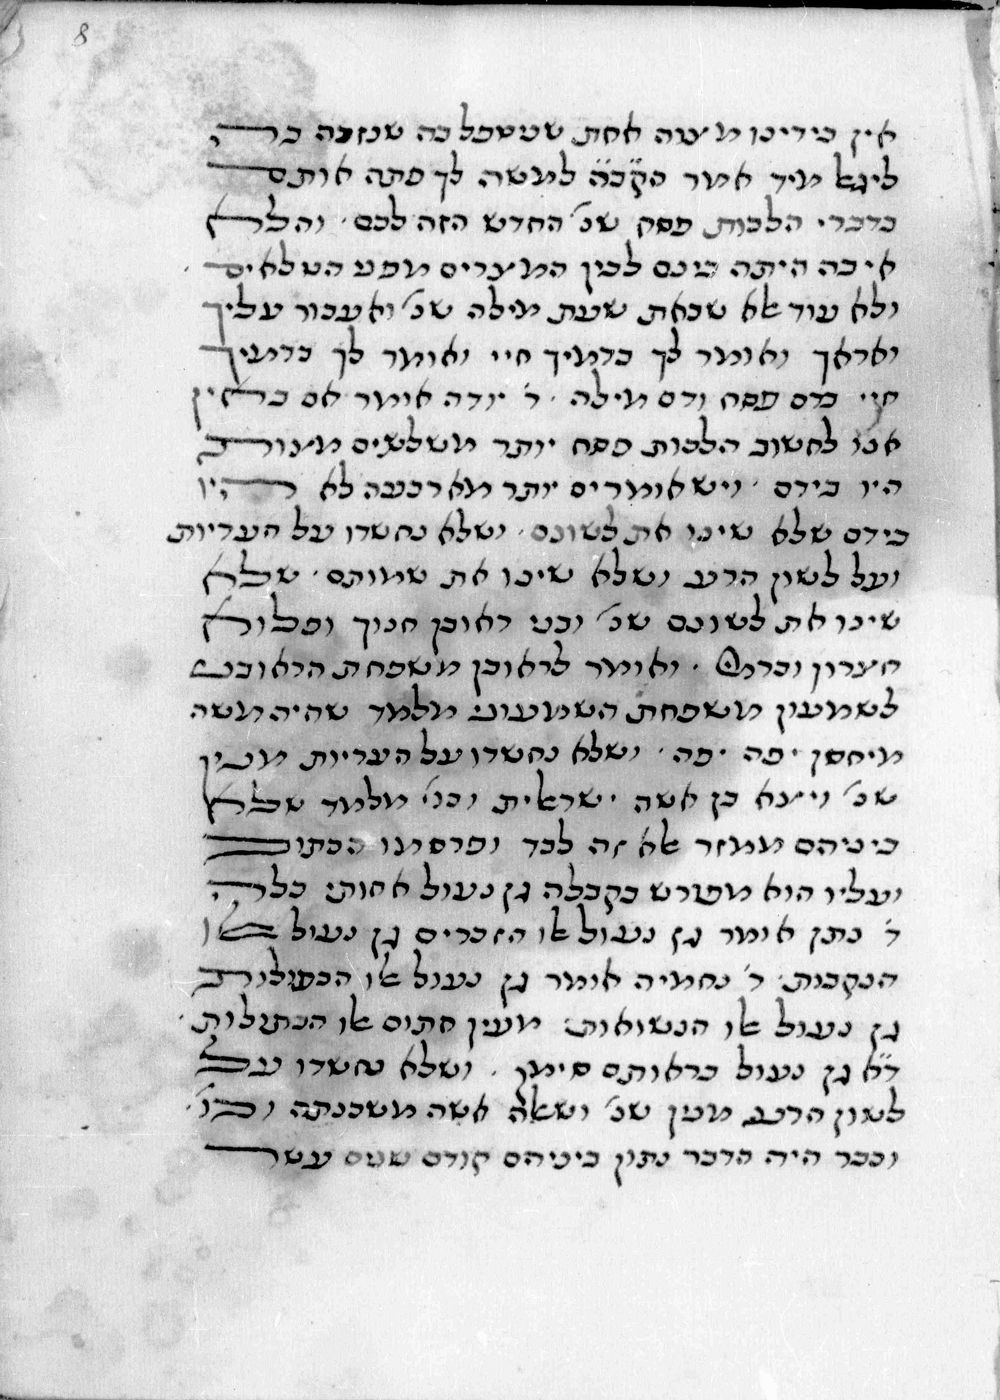 8
אין בידינו מצוה אחת שנשפל בה שנזכה בה
ליגאל מיד אמר הקב״ה למשה לך פתה אותם
בדברי הלכות פסח שנ׳ החדש הזה לכם ׳ והלא
איבה היתה בינם לבין המצרים מפני הטלאים ׳
ולא עוד אלא שבאת שעת מילה שנ׳ ואעבור עליך
ואראך ואומר לך בדמיך חיי ואומר לך בדמיך
חיי בדם פסח ודם מילה ׳ ר׳ יודה אומר אם באין
אנו לחשוב הלכות פסח יותר משלשים מצות
היו בידם ׳ ויש אומרים יותר מארבעה לא היו
בידם שלא שינו את לשונם ׳ ושלא נחשדו על העריות
ועל לשון הרע ושלא שינו את שמותם ׳ שלא
שינו את לשונם שנ׳ ובני ראובן חנוך ופלוא
חצרון וכרמי ׳ ואומר לראובן משפחת הראובני
לשמעון משפחת השמעוני מלמד שהיה משה
מיחסן יפה יפה ׳ ושלא נחשדו על העריות מנין
שנ׳ ויצא בן אשה ישראלית וכו׳ מלמד שלא
ביניהם ממזר אלא זה לבד ופרסמו הכתוב
ועליו הוא מפורש בקבלה גן נעול אחותי כלה
ר׳ נתן אומר גן נעול אלו הזכרים גן נעול אלו
הנקבות ׳ ר׳ נחמיה אומר גן נעול אלו הבתולות
גן נעול אלו הנשואות מעין חתום אלו הבתולות ׳
ד״א גן נעול בראותם סימן ׳ ושלא נחשדו על
לשון הרע מנין שנ׳ ושאלה אשה משכנתה וכו׳ ׳
וכבר היה הדבר נתון ביניהם קודם שנים עשר